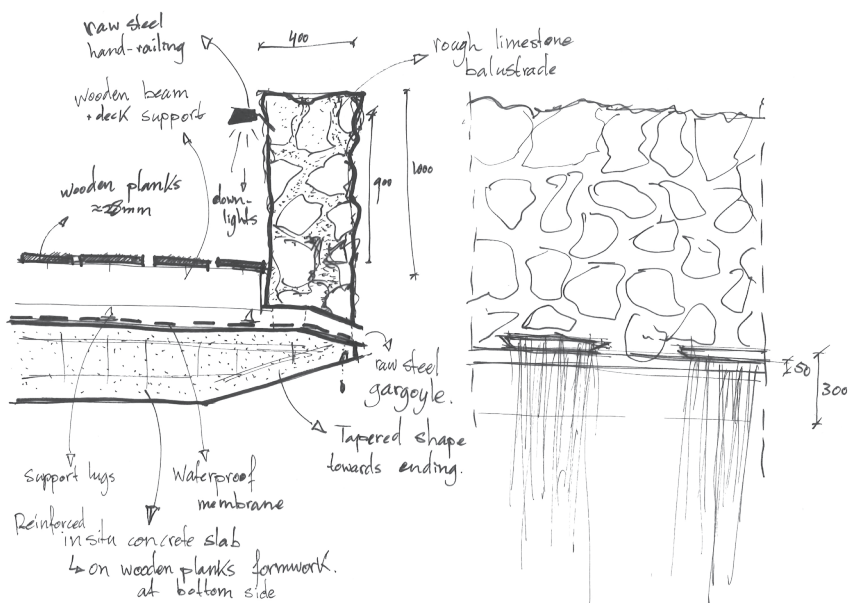 raw steel
hand-railing
400
rough limestone
balustrade
wooden beam
+ deck support
wooden planks
mm
down-
lights
900
1000
raw steel
gargoyle.
50
300
Tapered shape
towards ending.
Support lugs
Waterproof
membrane
Reinforced
insitu concrete slab
↳ on wooden planks formwork.
at bottom side